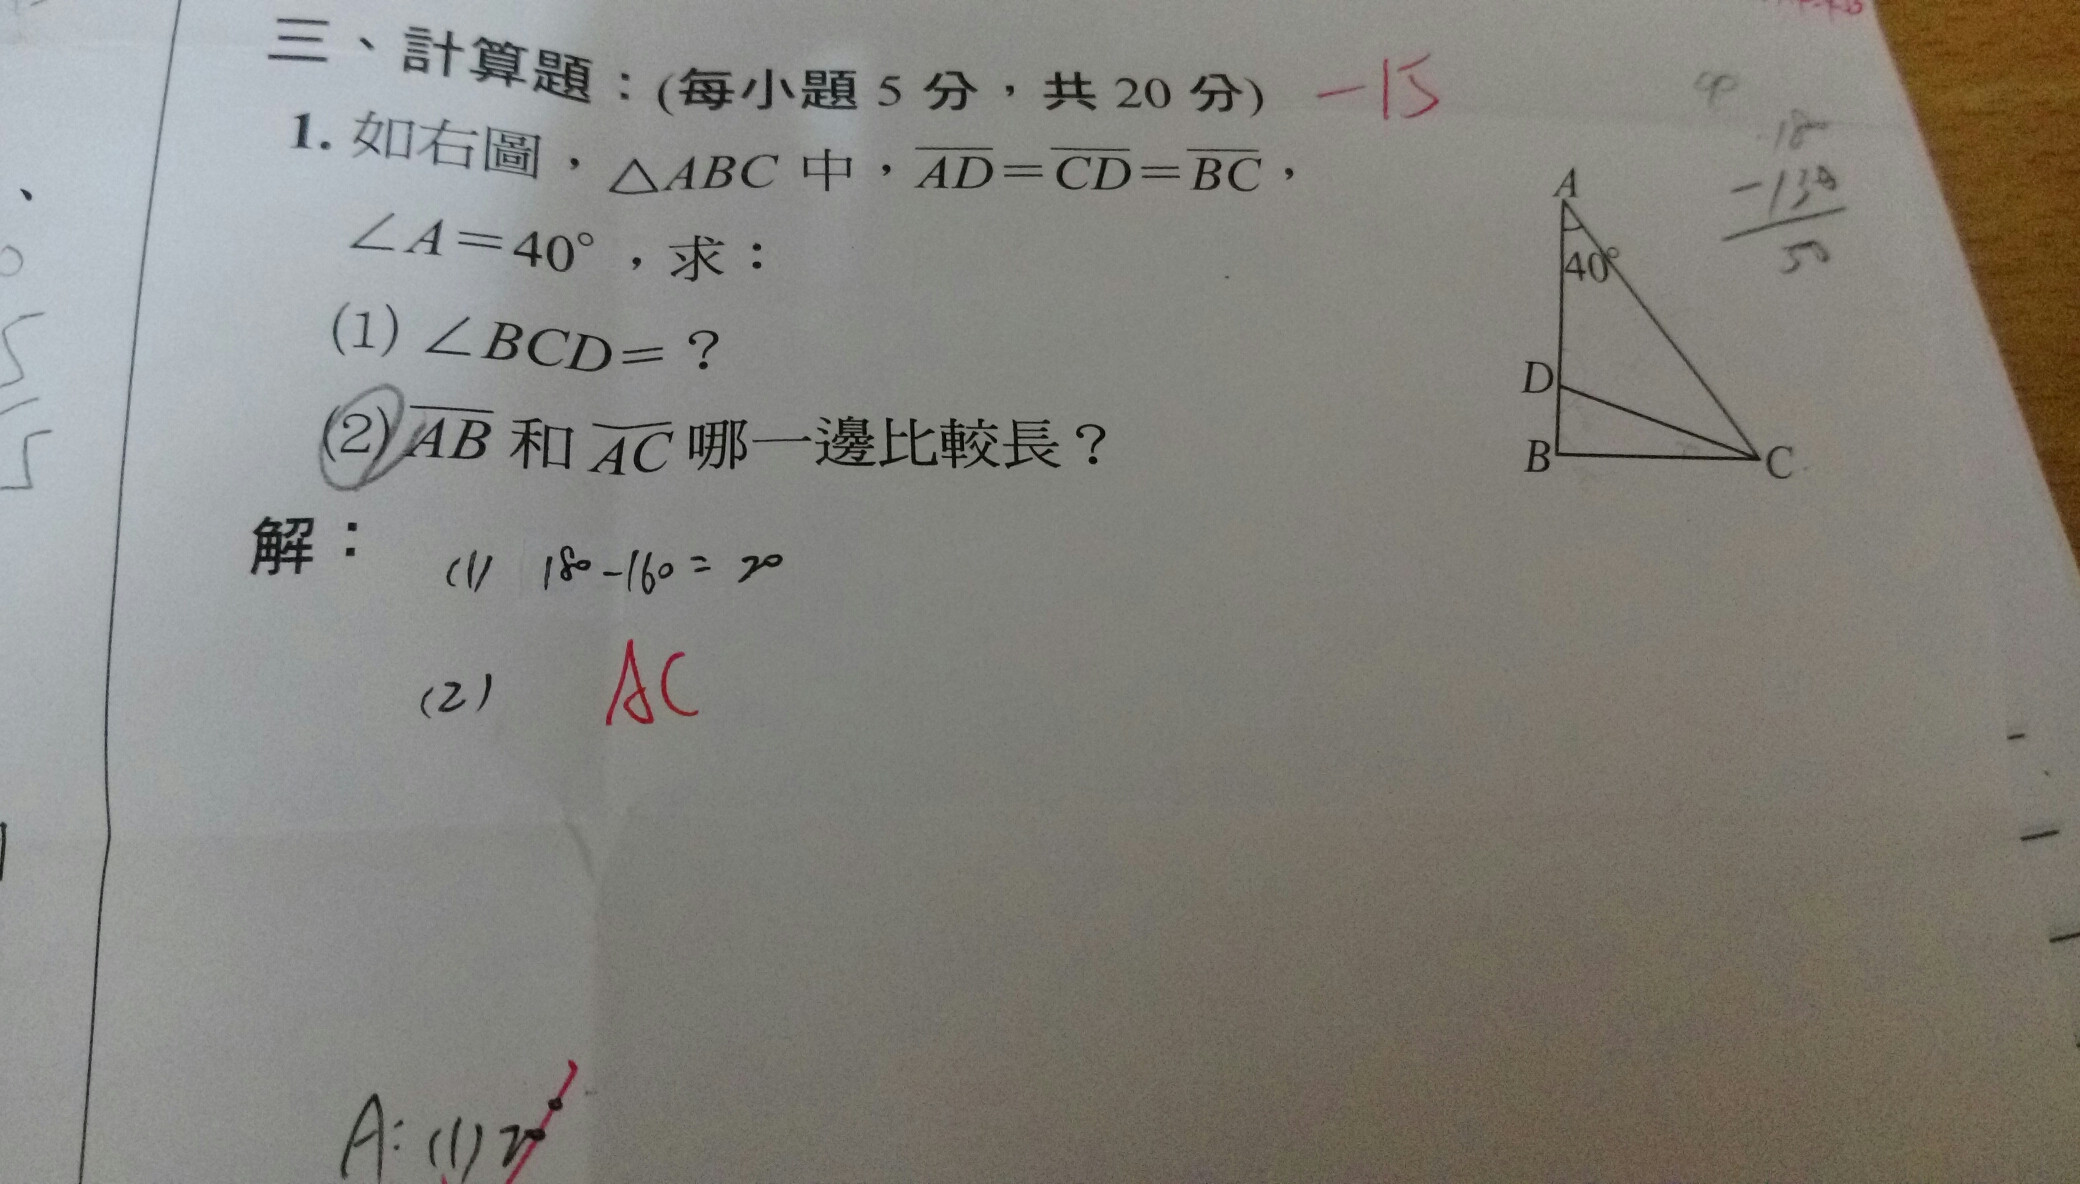 三、計算題：(每小題 5 分，共 20 分) -15
1. 如右圖，△ABC 中，AD＝CD＝BC，
∠A＝40°，求：
(1) ∠BCD＝？
(2) AB 和 AC 哪一邊比較長？
A
40°
D
B
C
解：
(1) 180-160=20
(2) AC
A: (1) 20